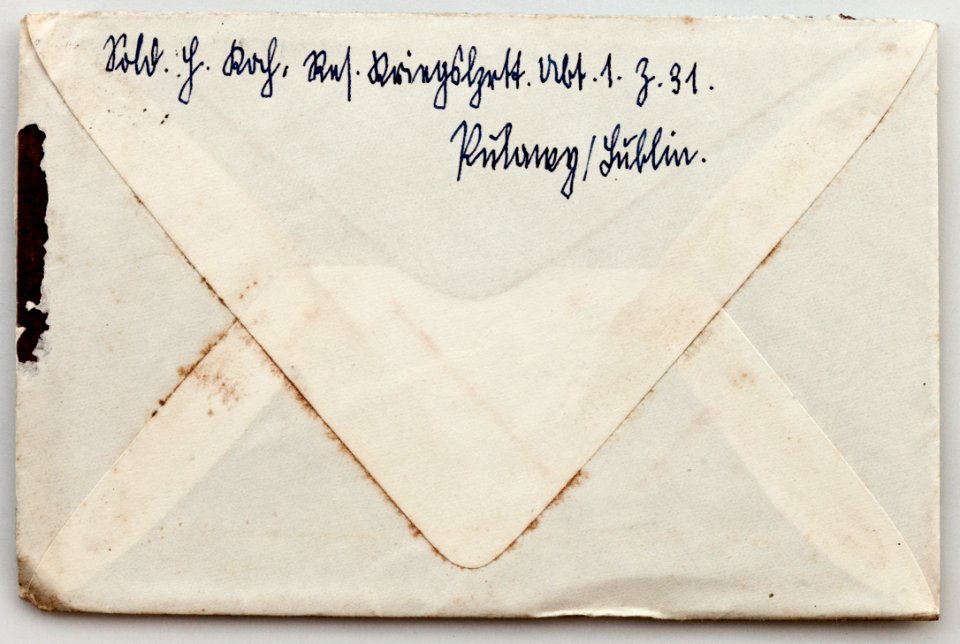 Sold. H. Koch, Res. Kriegslzrtt. Abt. 1. Z. 31.
Pulawy/Lublin.